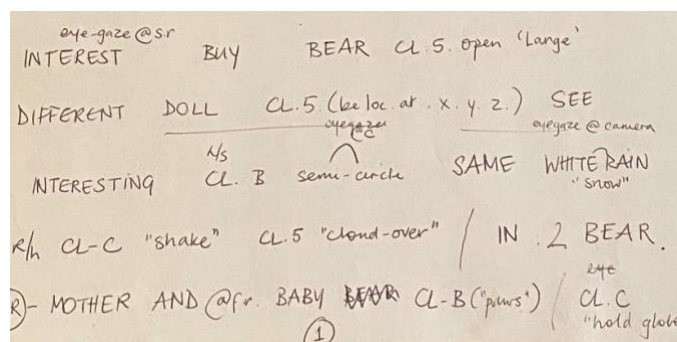 eye-gaze @ s.r
INTEREST BUY BEAR CL 5. open 'Large'
DIFFERENT DOLL CL.5. (be loc. at . x. y. z.) SEE
eyegaze eyegaze @ camera
N/S
INTERESTING CL. B semi-circle SAME WHITE RAIN
"snow"
R/h CL-C "shake" CL.5 "cloud-over" / IN . 2 BEAR.
eye
R - MOTHER AND @fr. BABY BEAR CL-B ("paws") / CL.C
1 "hold globe